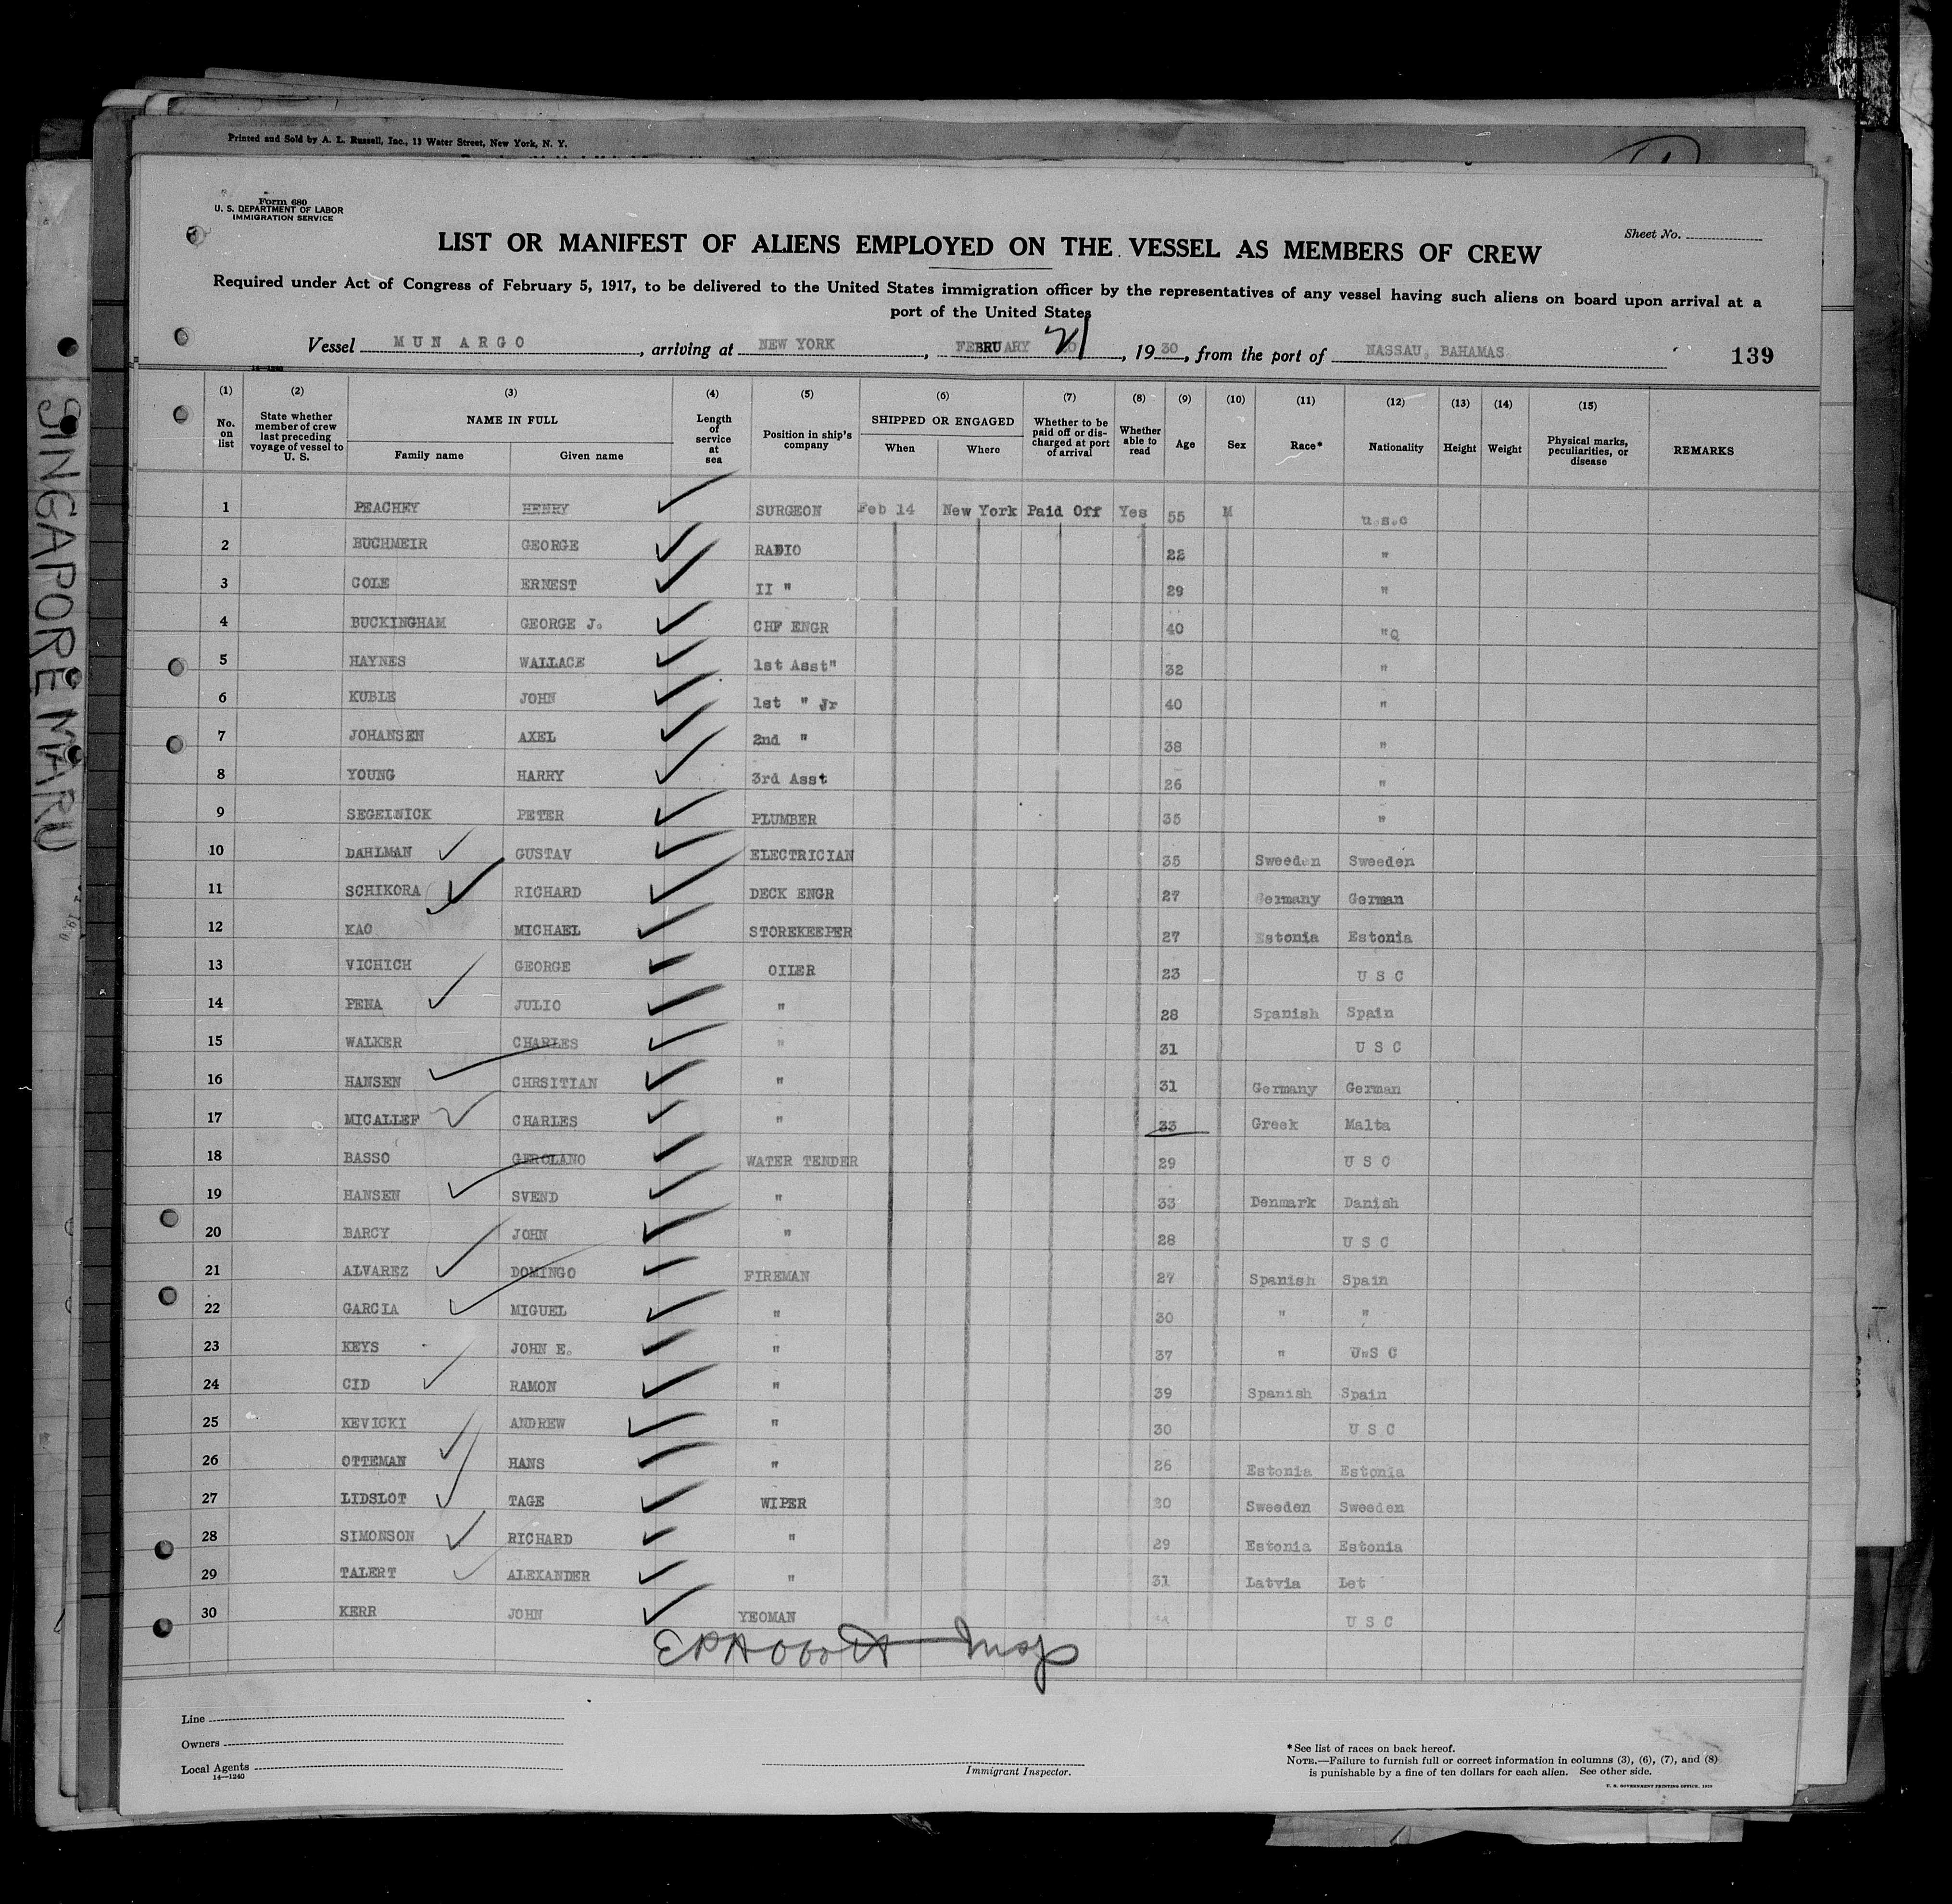 Printed and Sold by A. L. Russell, Inc., 13 Water Street, New York, N. Y.
Form 680
U. S. DEPARTMENT OF LABOR
IMMIGRATION SERVICE
Sheet No.
LIST OR MANIFEST OF ALIENS EMPLOYED ON THE VESSEL AS MEMBERS OF CREW
Required under Act of Congress of February 5, 1917, to be delivered to the United States immigration officer by the representatives of any vessel having such aliens on board upon arrival at a
port of the United States
Vessel MUN ARGO, arriving at NEW YORK, FEBRUARY 21, 1930, from the port of NASSAU, BAHAMAS 139
14—1240
(1) (2) (3) (4) (5) (6) (7) (8) (9) (10) (11) (12) (13) (14) (15)
No. on list State whether member of crew last preceding voyage of vessel to U. S. NAME IN FULL Family name Given name Length of service at sea Position in ship's company SHIPPED OR ENGAGED When Where Whether to be paid off or discharged at port of arrival Whether able to read Age Sex Race* Nationality Height Weight Physical marks, peculiarities, or disease REMARKS
1 PEACHEY HENRY SURGEON Feb 14 New York Paid Off Yes 55 M u.s.c
2 BUCHMEIR GEORGE RADIO 22 "
3 COLE ERNEST II " 29 "
4 BUCKINGHAM GEORGE J. CHF ENGR 40 "Q
5 HAYNES WALLACE 1st Asst" 32 "
6 KUBLE JOHN 1st " Jr 40 "
7 JOHANSEN AXEL 2nd " 38 "
8 YOUNG HARRY 3rd Asst 26 "
9 SEGELNICK PETER PLUMBER 35 "
10 DAHLMAN GUSTAV ELECTRICIAN 35 Sweeden Sweeden
11 SCHIKORA RICHARD DECK ENGR 27 Germany German
12 KAO MICHAEL STOREKEEPER 27 Estonia Estonia
13 VICHICH GEORGE OILER 23 U S C
14 PENA JULIO " 28 Spanish Spain
15 WALKER CHARLES " 31 U S C
16 HANSEN CHRSITIAN " 31 Germany German
17 MICALLEF CHARLES " 33 Greek Malta
18 BASSO GEROLANO WATER TENDER 29 U S C
19 HANSEN SVEND " 33 Denmark Danish
20 BARCY JOHN " 28 U S C
21 ALVAREZ DOMINGO FIREMAN 27 Spanish Spain
22 GARCIA MIGUEL " 30 " "
23 KEYS JOHN E. " 37 " U S C
24 CID RAMON " 39 Spanish Spain
25 KEVICKI ANDREW " 30 U S C
26 OTTEMAN HANS " 26 Estonia Estonia
27 LIDSLOT TAGE WIPER 20 Sweeden Sweeden
28 SIMONSON RICHARD " 29 Estonia Estonia
29 TALERT ALEXANDER " 31 Latvia Let
30 KERR JOHN YEOMAN U S C
EPAbbott Insp
Line
Owners
Local Agents
14—1240
Immigrant Inspector.
*See list of races on back hereof.
NOTE.—Failure to furnish full or correct information in columns (3), (6), (7), and (8)
is punishable by a fine of ten dollars for each alien. See other side.
U. S. GOVERNMENT PRINTING OFFICE, 1929
SINGAPORE MARU